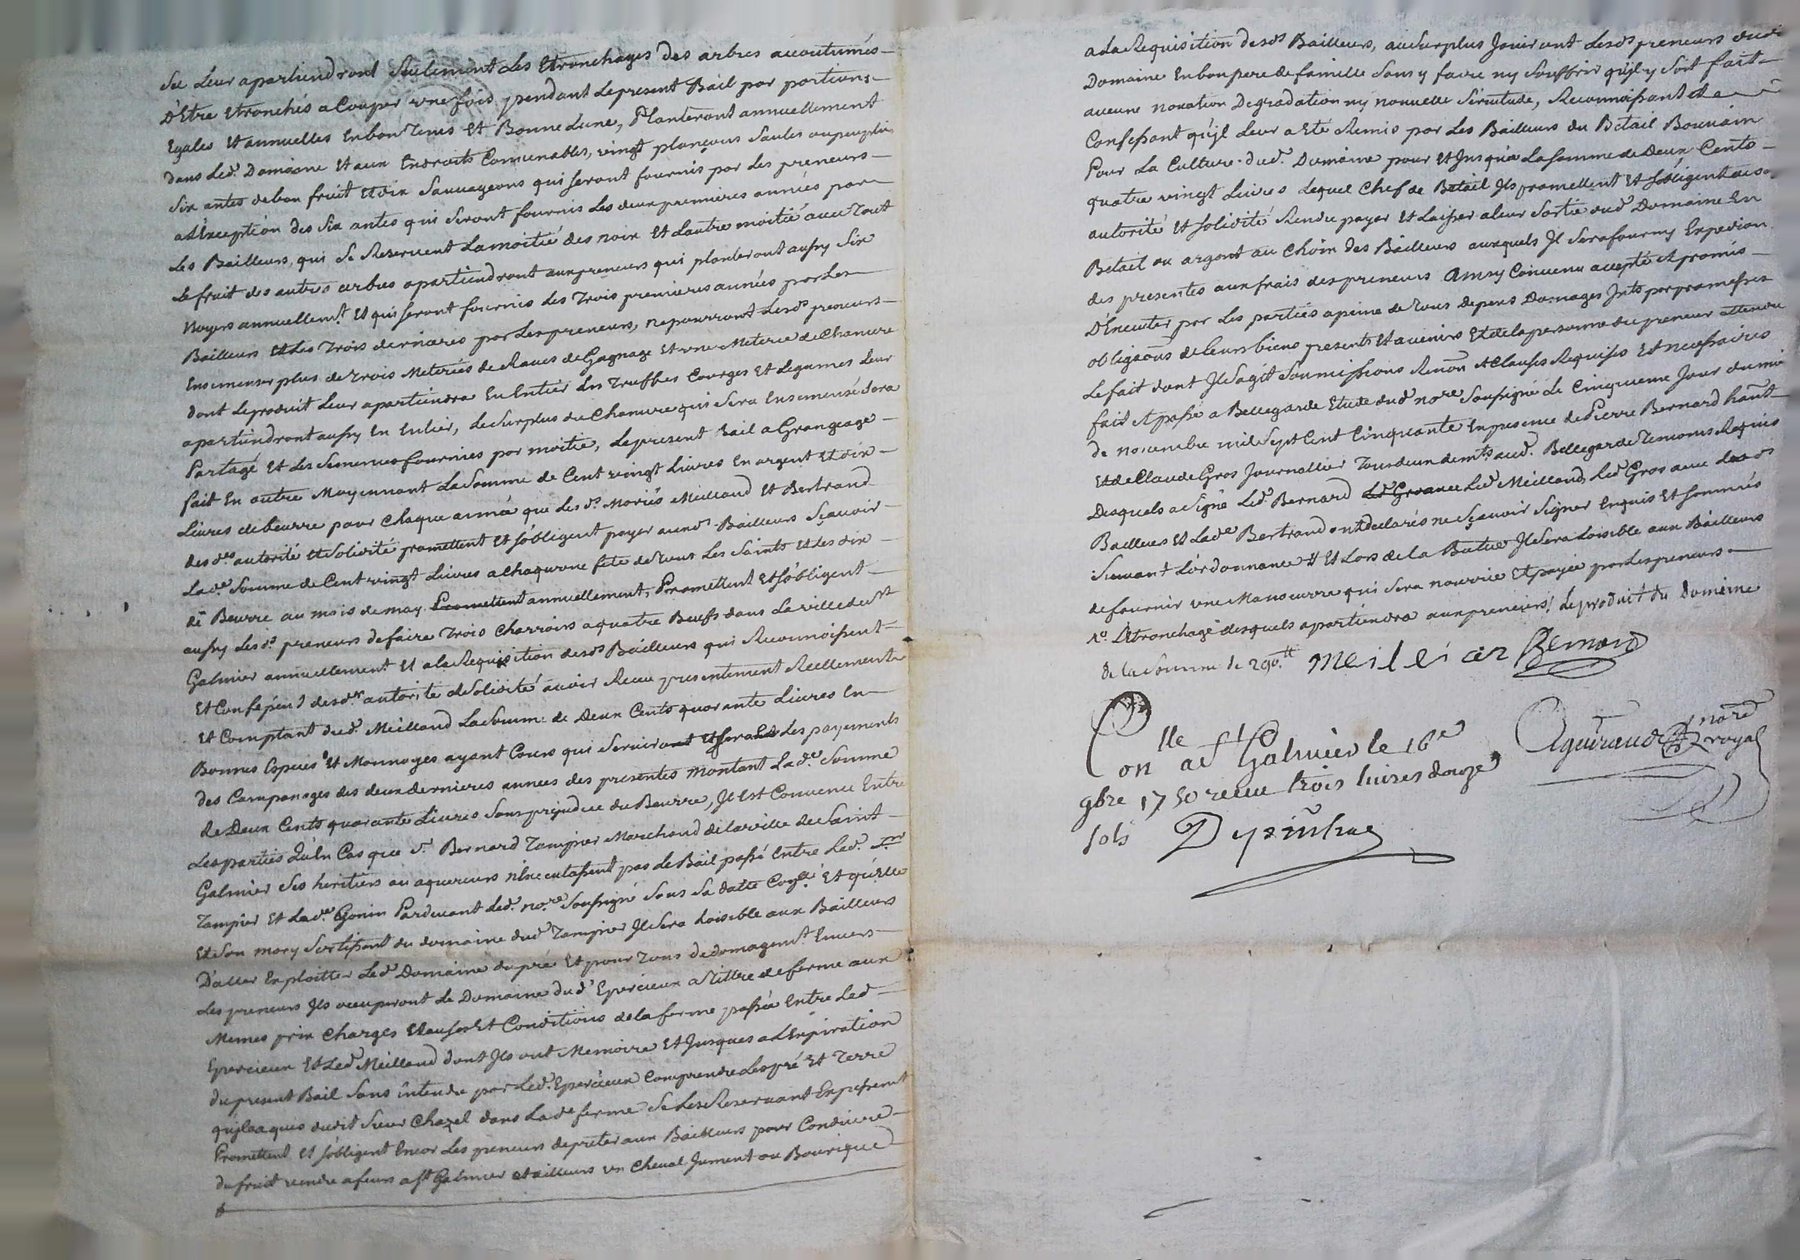 Se Leur apartiendront Seulement Les Etronchages des arbres accoutumés
D'Etre Etronchés a Couper une fois pendant Le present Bail par portions
Egales Et annuelles En bon Tems Et Bonne Lune, Planteront annuellement
dans Led. Domaine Et aux Endroits Convenables, vingt plançons Saules ou peupliers
Six antes de bon fruit Et dix Sauvageons qui Seront fournis par Les preneurs
a L'Exception des Six antes qui Seront fournis Les deux premieres années par
Les Bailleurs, qui Se Reservent La moitié des noix Et L'autre moitié avec Tout
Le fruit des autres arbres apartiendront aux preneurs qui planteront aussy Six
Noyers annuellemt. Et qui Seront fournis Les Trois premieres années par Les
Bailleurs Et Les Trois dernieres par Les preneurs, ne pourront Lesds. preneurs
Ensemenser plus de Trois Meterées de Raves de Gagnage Et une Meterée de Chanvre
dont Le produit Leur apartiendra En Entier Les Truffes Courges Et Legumes Leur
apartiendront aussy En Entier, Le Surplus du Chanvre qui Sera Ensemensé Sera
Partagé Et Les Semences fournies par moitié, Le present Bail a Grangeage
fait En outre Moyennant La Somme de Cent vingt Livres En argent Et dix
Livres de beurre pour Chaque année que Les d. Mariés Meilland Et Bertrand
des des. autorité Et Solidité promettent Et s'obligent payer auxds. Bailleurs Sçavoir
Lad. Somme de Cent vingt Livres a Chaqu'une fete de Tous Les Saints Et Les dix
de Beurre au mois de may Promettent annuellement, Promettent Et s'obligent
aussy Lesds. preneurs de faire Trois Charrois a quatre Bœufs dans La ville de St
Galmier annuellement Et a la Requisition desds. Bailleurs qui Reconnoissent
Et Confessent desds. autorité Et Solidité avoir Receu presentement Reellement
Et Comptant dud. Meilland La Somme de Deux Cents quarante Livres En
Bonnes Especes Et Monnoyes ayant Cours qui Serviront Les payements
des Campanages des deux dernieres années des presentes montant Lad. Somme
de Deux Cents quarante Livres Sans prejudice du Beurre, Il Est Convenu Entre
Les parties Qu'En Cas que Sr. Bernard Tampier Marchand de la ville de Saint
Galmier Ses heritiers ou aquereurs n'Executassent pas Le Bail passé Entre Led. Sr
Tampier Et Lad. Gonin Pardevant Led. nore. Soussigné Sous Sa datte Cong. Et qu'Elle
Et Son mary Sortissent du domaine dud. Tampier Il Sera Loisible aux Bailleurs
D'aller Exploitter Led. Domaine du pré Et pour Tous dedomagemt. Envers
Les preneurs Ils occuperont Le Domaine dud. Epercieux a Tittre de ferme aux
Memes prix Charges Clauses Et Conditions de la ferme passée Entre Led.
Epercieux Et Led. Meilland dont Ils ont Memoire Et Jusques a L'Expiration
du present Bail Sans intendre par Led. Epercieux Comprendre Les pré Et Terre
qu'il a aquis dudit Sieur Chazel dans Lad. ferme Se Les Reservant Expressement
Promettent Et s'obligent Encor Les preneurs de preter aux Bailleurs pour Conduire
du fruit vendre a feurs a St Galmier Et ailleurs un Cheval Jument ou Bourique
a La Requisition desds. Bailleurs, au Surplus Jouiront Lesds. preneurs dud.
Domaine En bon pere de famille Sans y faire ny Souffrir qu'il y Soit fait
aucune novation Degradation ny nouvelle Servitude, Reconnoissant Et
Confessant qu'il Leur a Eté Remis par Les Bailleurs du Bétail Bouvain
Pour La Culture dud. Domaine pour Et Jusqu'a La Somme de Deux Cents
quatre vingt Livres Lequel Chef de Bétail Ils promettent Et s'obligent
autorité Et Solidité Rendre payer Et Laisser a leur Sortie dud. Domaine En
Betail ou argent au Choix des Bailleurs auxquels Il Sera fourny Expedion
des presentes aux frais des preneurs Ainsy Convenu accepté Et promis
D'Executer par Les parties a peine de Tous Depens Domages Jnts. par promesses
obligaons de leurs biens presents Et avenirs Et de la personne du preneur attendu
Le fait dont Il S'agit Soumissions Renon. Et Clauses Requises Et necessaires
fait Et passé a Bellegarde Etude dud. nore. Soussigné Le Cinquieme Jour du mois
de novembre mil Sept Cent Cinquante En presence de Pierre Bernard hant
Et de Claude Gros Journallier Tous deux demts. aud. Bellegarde Temoins Requis
Desquels a Signé Led. Bernard Led. Meilland, Led. Gros avec Lesds.
Bailleurs Et Lad. Bertrand ont declarés ne Sçavoir Signer Enquis Et Sommés
Suivant L'ordonnance # Et Lors de la Batue Il Sera Loisible aux Bailleurs
de fournir une Manœuvre qui Sera nourrie Et payée par Les preneurs
L'Etronchage desquels apartiendra aux preneurs / Le produit du Domaine
de la Somme de 290 tt meilei an Bernard
Conlle a St Galmier le 16e
9bre 1750 receu trois livres douze
sols Depinhac
Aguiraud nore royal